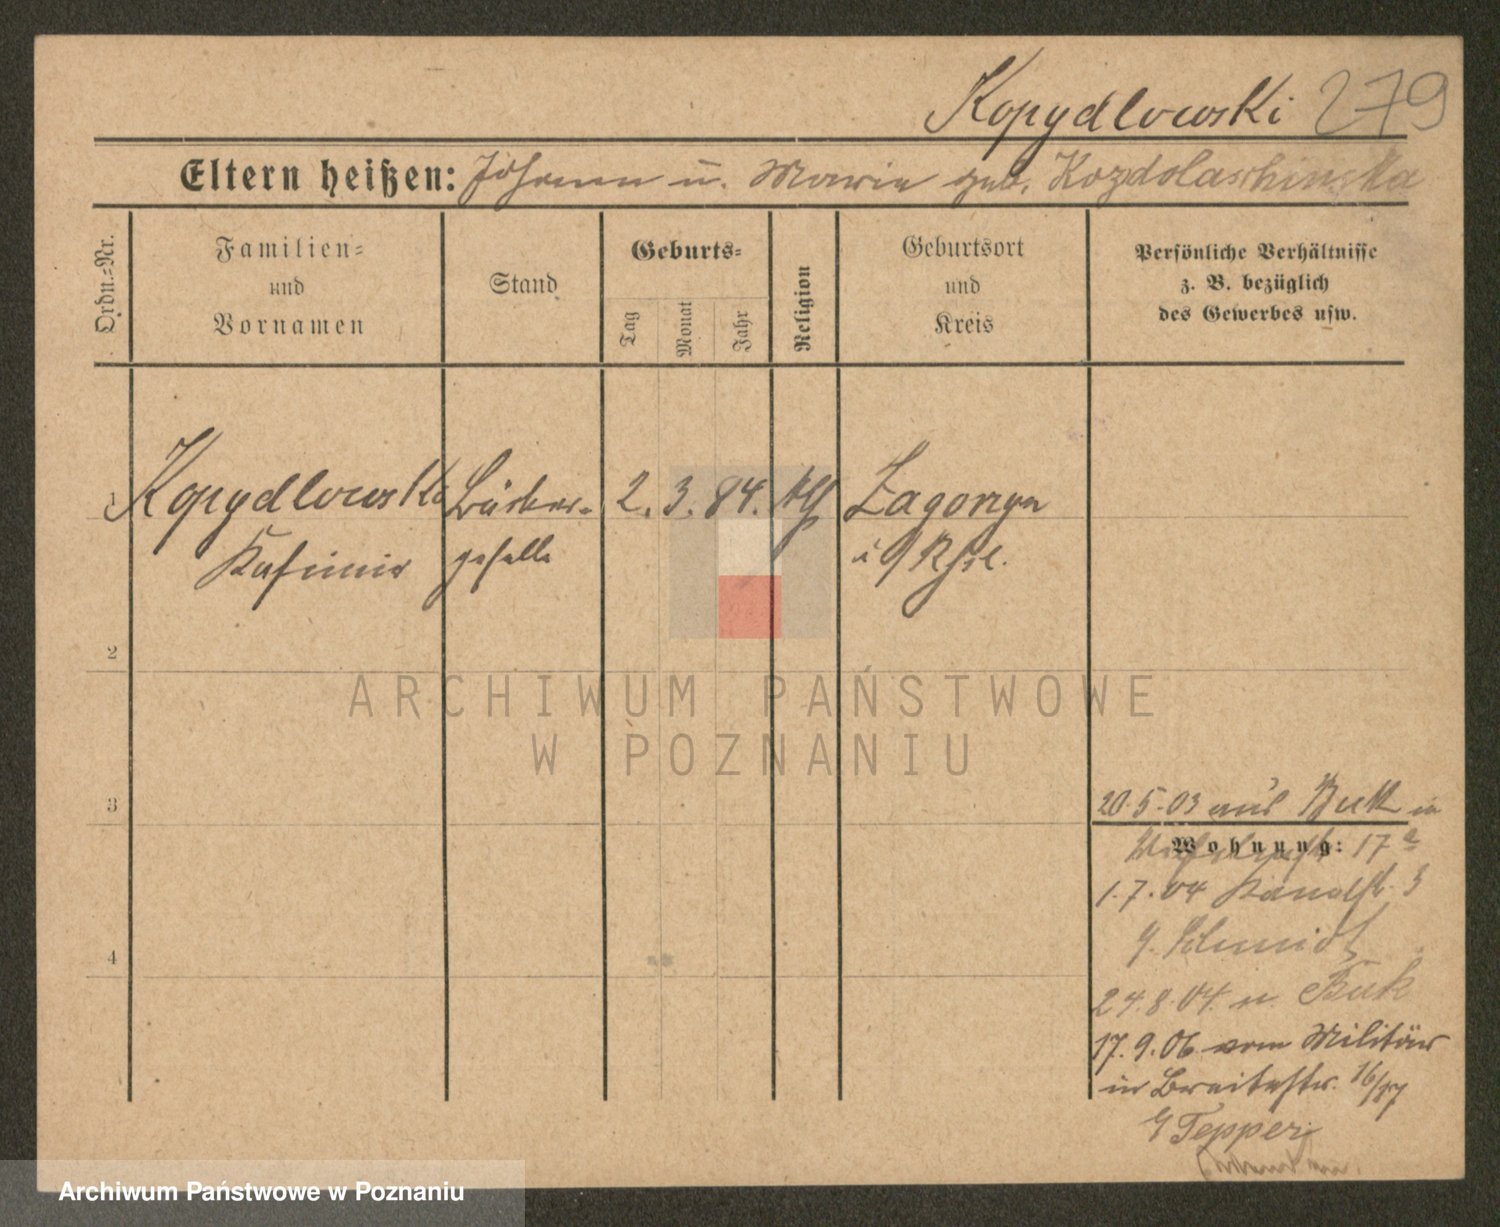 Kopydlowski 279
Eltern heißen: Johann u. Marie geb.
Ordn.-Nr.
Familien-
und
Vornamen
Stand
Geburts-
Tag
Monat
Jahr
Religion
Geburtsort
und
Kreis
Persönliche Verhältnisse
z. B. bezüglich
des Gewerbes usw.
1 Kopydlowski Bäcker- 2. 3. 84. kth Zagorzyn
Kasimir geselle
2
3
4
20.5.03 aus Buk in
Wohnung: 17a
1.7.04 Kanalstr. 3
b. Schmidt
24.8.04. n. Buk
17.9.06 vom Militär
in Breitestr. 16/17
b Tepper
ARCHIWUM PAŃSTWOWE
W POZNANIU
Archiwum Państwowe w Poznaniu